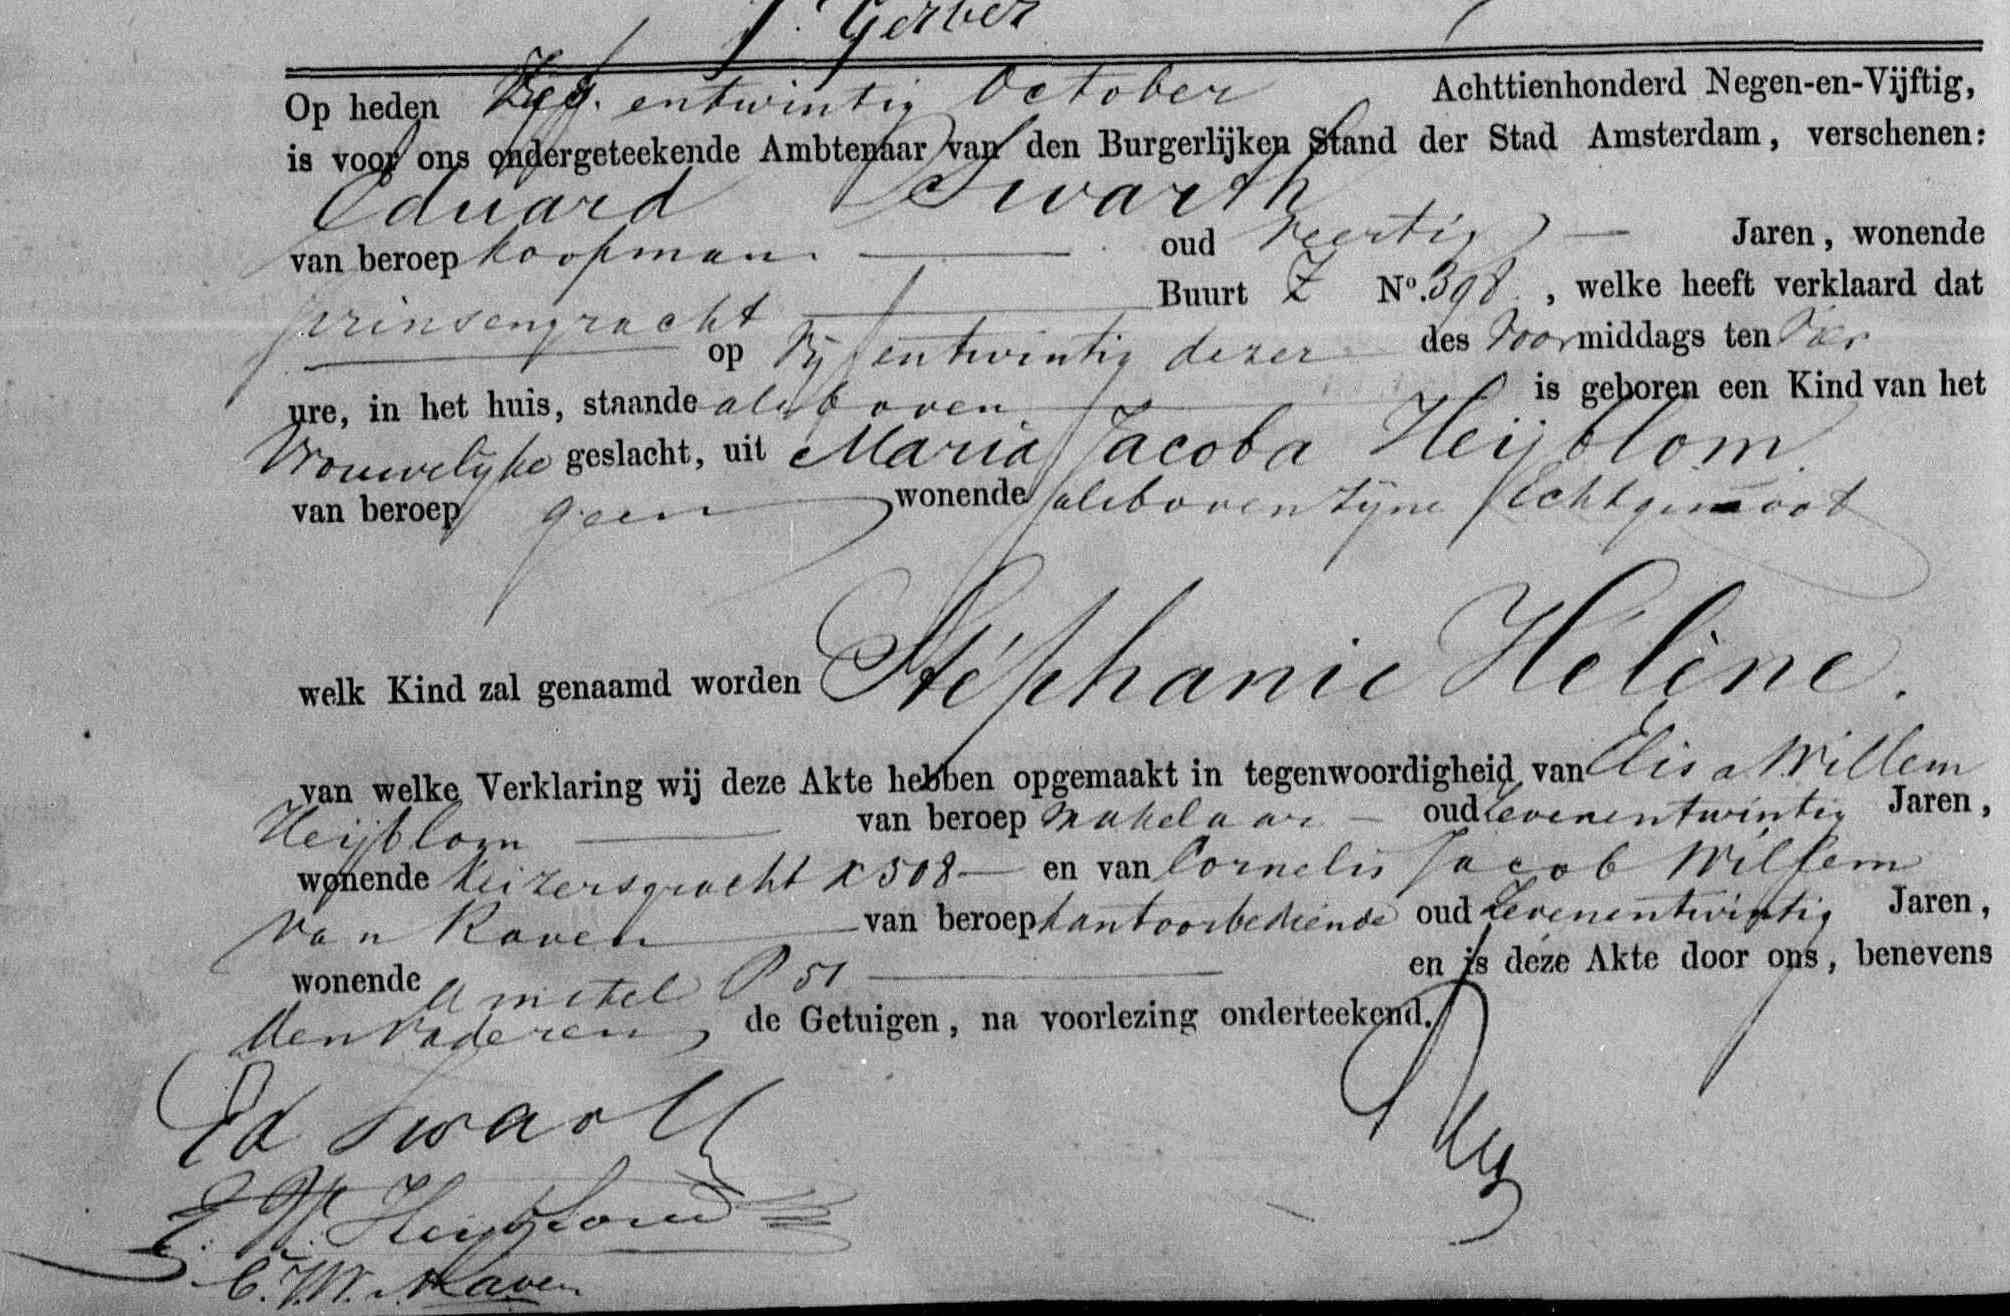 J. Gerber
Op heden Zes. entwintig October Achttienhonderd Negen-en-Vijftig,
is voor ons ondergeteekende Ambtenaar van den Burgerlijken Stand der Stad Amsterdam, verschenen:
Eduard Swarth
van beroep koopman oud veertig Jaren, wonende
prinsengracht Buurt Z No. 398, welke heeft verklaard dat
op Vijfentwintig dezer des Voormiddags ten vier
ure, in het huis, staande als boven is geboren een Kind van het
Vrouwelijke geslacht, uit Maria Jacoba Heijblom
van beroep geen wonende als boven zijne Echtgenoot
welk Kind zal genaamd worden Stéphanie Hélène.
van welke Verklaring wij deze Akte hebben opgemaakt in tegenwoordigheid van Elisa Willem
Heijblom van beroep makelaar oud Zevenentwintig Jaren,
wonende Keizersgracht X 508 en van Cornelis Jacob Willem
van Raven van beroep kantoorbediende oud Zevenentwintig Jaren,
wonende Amstel P 51 en is deze Akte door ons, benevens
den Vader en de Getuigen, na voorlezing onderteekend.
Ed Swarth
E. W. Heijblom
C.J.W. v. Raven